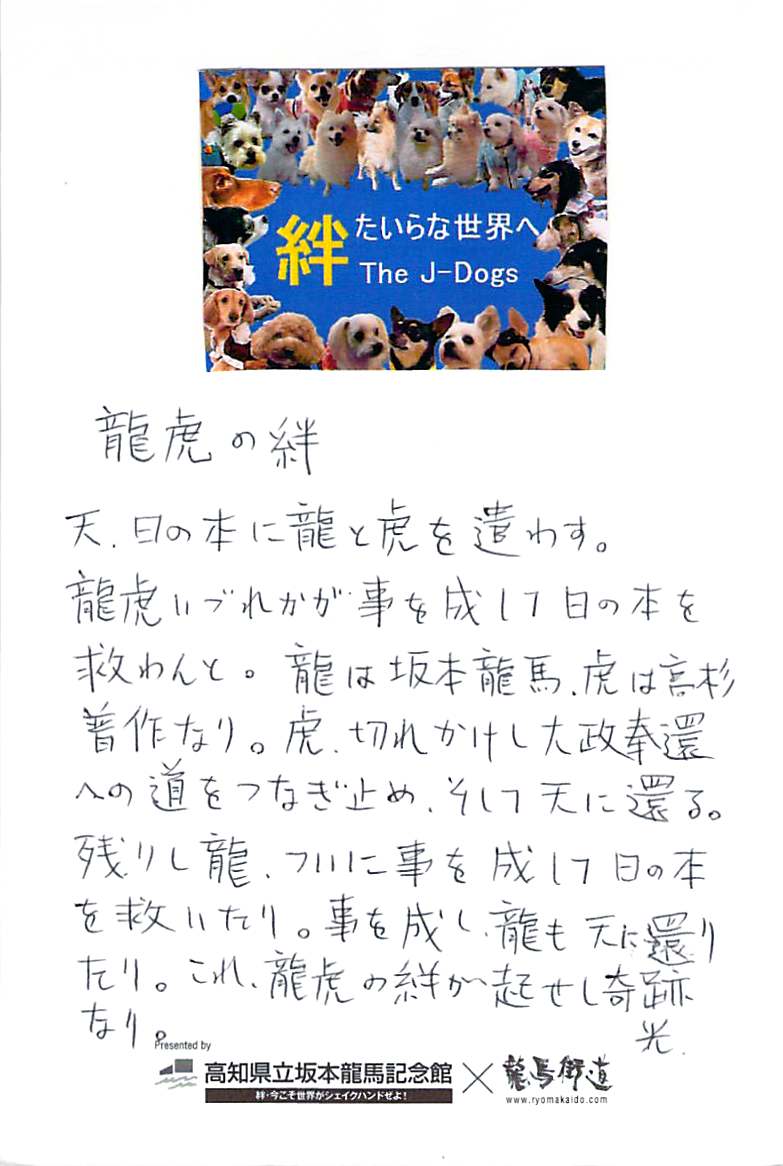 絆 たいらな世界へ
The J-Dogs
龍虎の絆
天、日の本に龍と虎を遣わす。
龍虎いづれかが事を成して日の本を
救わんと。龍は坂本龍馬、虎は高杉
晋作なり。虎、切れかけし大政奉還
への道をつなぎ止め、そして天に還る。
残りし龍、ついに事を成して日の本
を救いたり。事を成し、龍も天に還り
たり。これ、龍虎の絆が起せし奇跡
なり。
光
Presented by
高知県立坂本龍馬記念館 × 龍馬街道
絆・今こそ世界がシェイクハンドぜよ!
www.ryomakaido.com